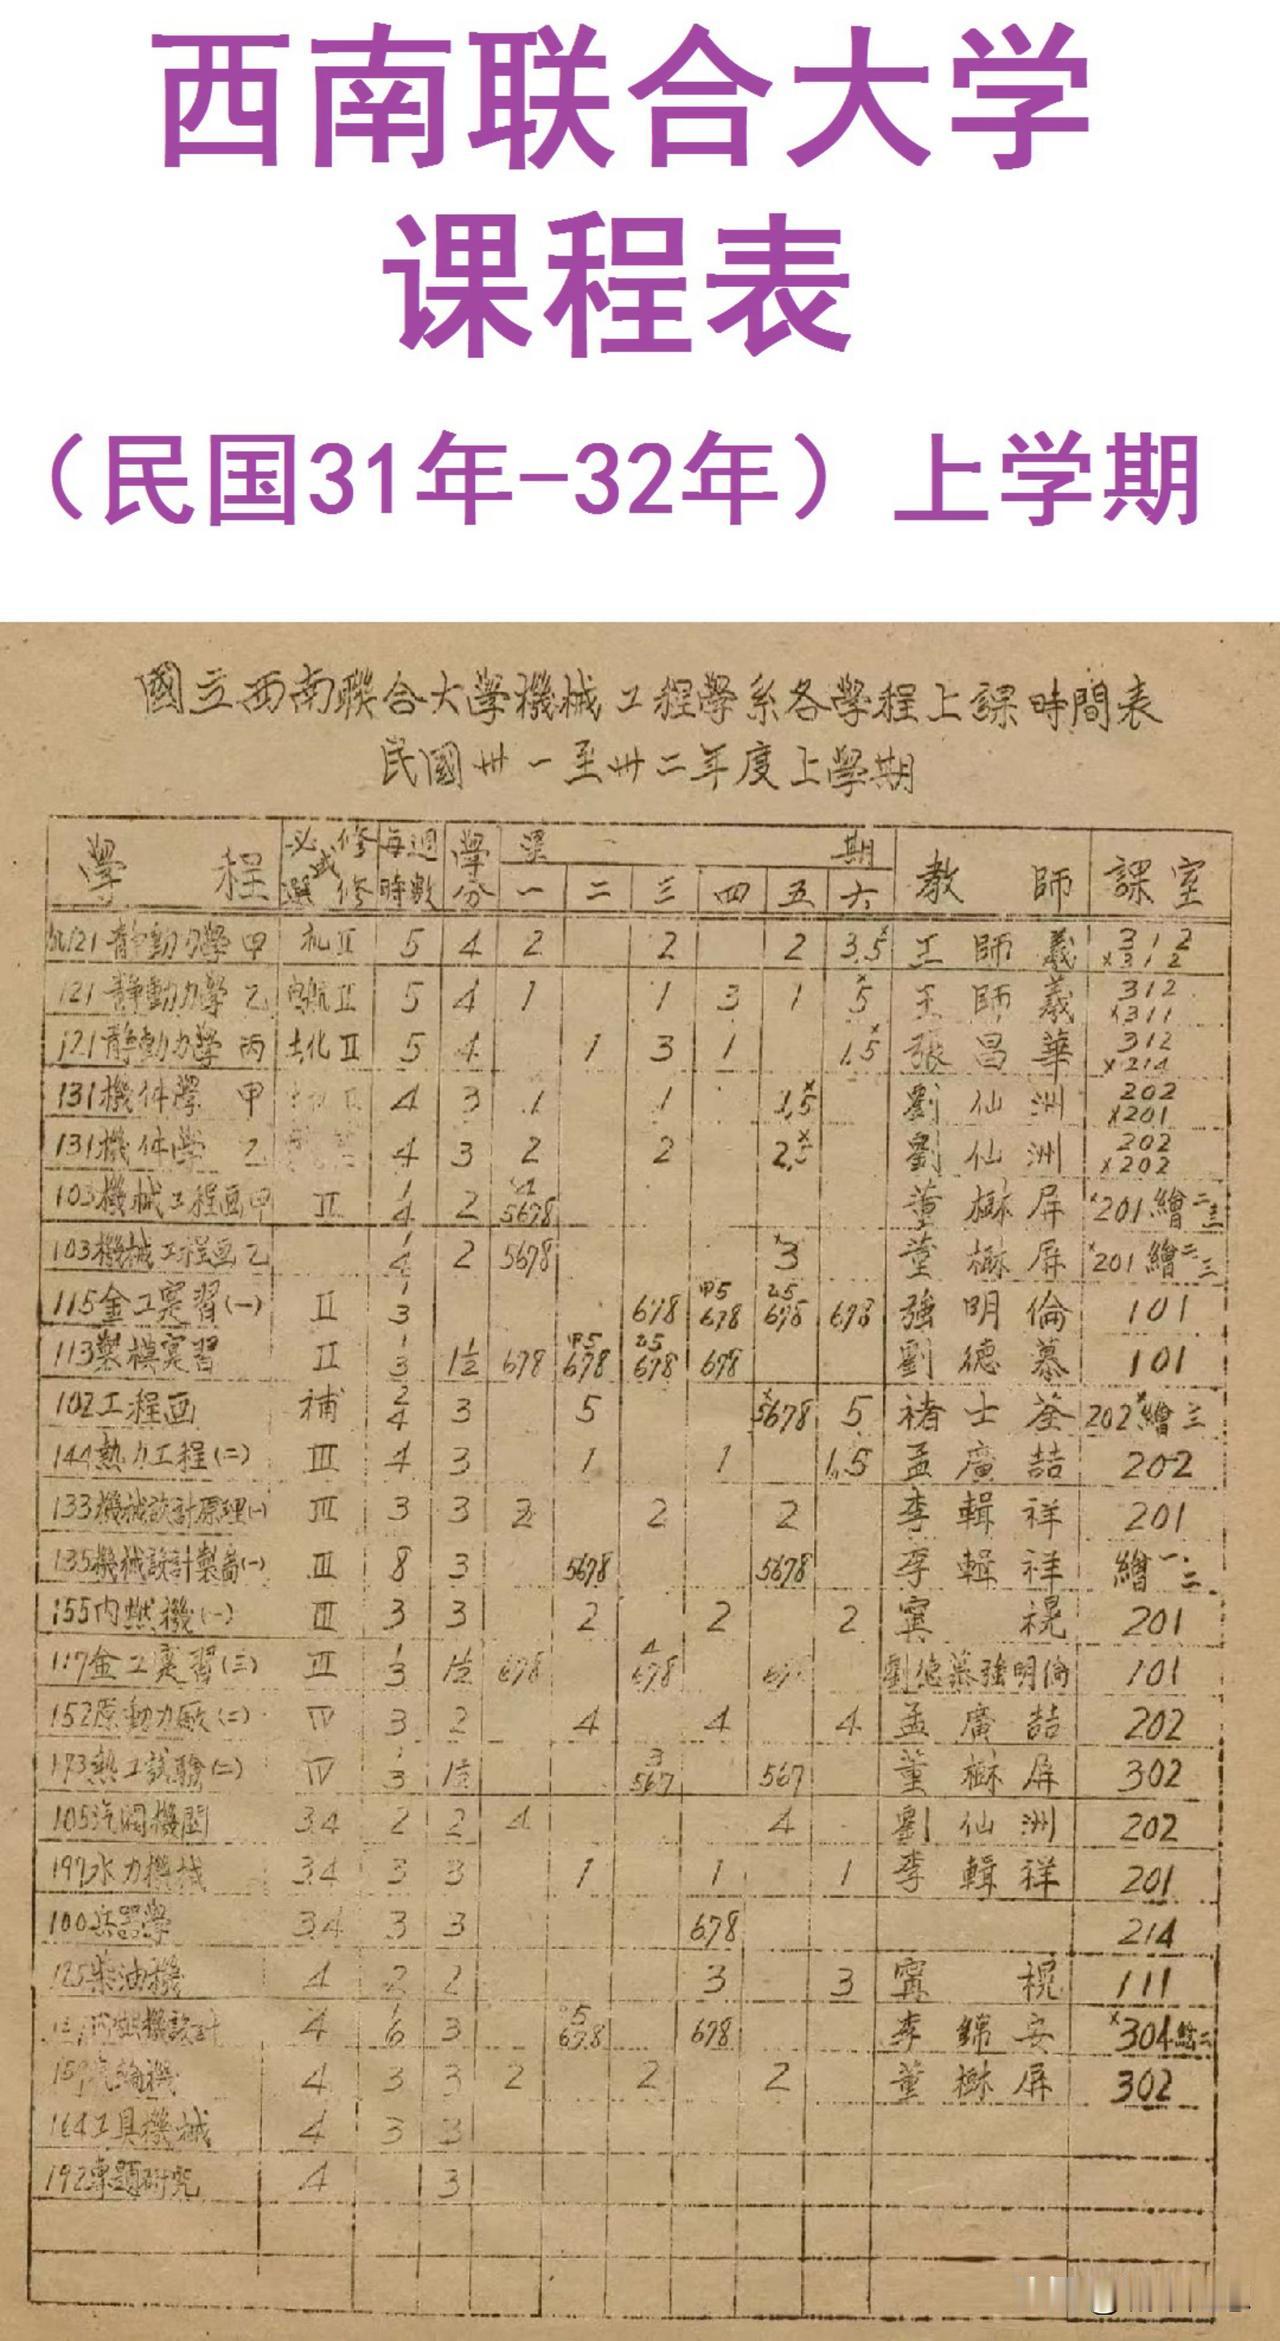 西南联合大学
课程表
（民国31年-32年）上学期
國立西南聯合大學機械工程學系各學程上課時間表
民國卅一至卅二年度上學期
學程 必修或選修 每週時數 學分 星期 一 二 三 四 五 六 教師 課室
121靜動力學甲 机II 5 4 2 2 2 3,5× 王師義 312 ×312
121靜動力學乙 II 5 4 1 1 3 1 ×5 王師義 312 ×311
121靜動力學丙 土化II 5 4 1 3 1 1,5× 張昌華 312 ×214
131機件學 甲 4 3 1 1 1,5× 劉仙洲 202 ×201
131機件學 乙 4 3 2 2 2,5× 劉仙洲 202 ×202
103機械工程画甲 II 1 4 2 5678 董樹屏 ×201繪二三
103機械工程画乙 1 4 2 5678 ×3 董樹屏 ×201繪二三
115金工實習(一) II 1 3 678 甲5 678 乙5 678 678 強明倫 101
113製模實習 II 1 3 1½ 678 甲5 678 乙5 678 678 劉德慕 101
102工程画 補 2 4 3 5 ×5678 5 褚士荃 202×繪三
144熱力工程(二) III 4 3 1 1 1,5 孟廣喆 202
133機械設計原理(一) III 3 3 2 2 2 李輯祥 201
135機械設計製圖(一) III 8 3 5678 5678 李輯祥 繪一、二
155內燃機(一) III 3 3 2 2 2 甯榥 201
117金工實習(三) III 1 3 1½ 678 4 678 678 劉德慕強明倫 101
152原動力廠(二) IV 3 2 4 4 4 孟廣喆 202
173熱工試驗(二) IV 1 3 1½ 3 567 567 董樹屏 302
105汽閥機關 3.4 2 2 4 4 劉仙洲 202
197水力機械 3.4 3 3 1 1 1 李輯祥 201
100兵器學 3.4 3 3 678 214
125柴油機 4 2 2 3 3 甯榥 111
內燃機設計 4 1 6 3 5 678 678 李錦安 ×304繪二
汽輪機 4 3 3 2 2 2 董樹屏 302
164工具機械 4 3 3
192專題研究 4 3